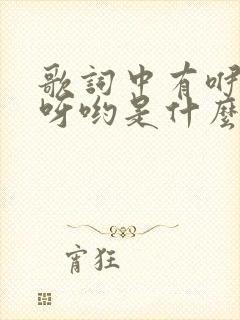 歌詞中有咿
呀喲是什麼
宵狂